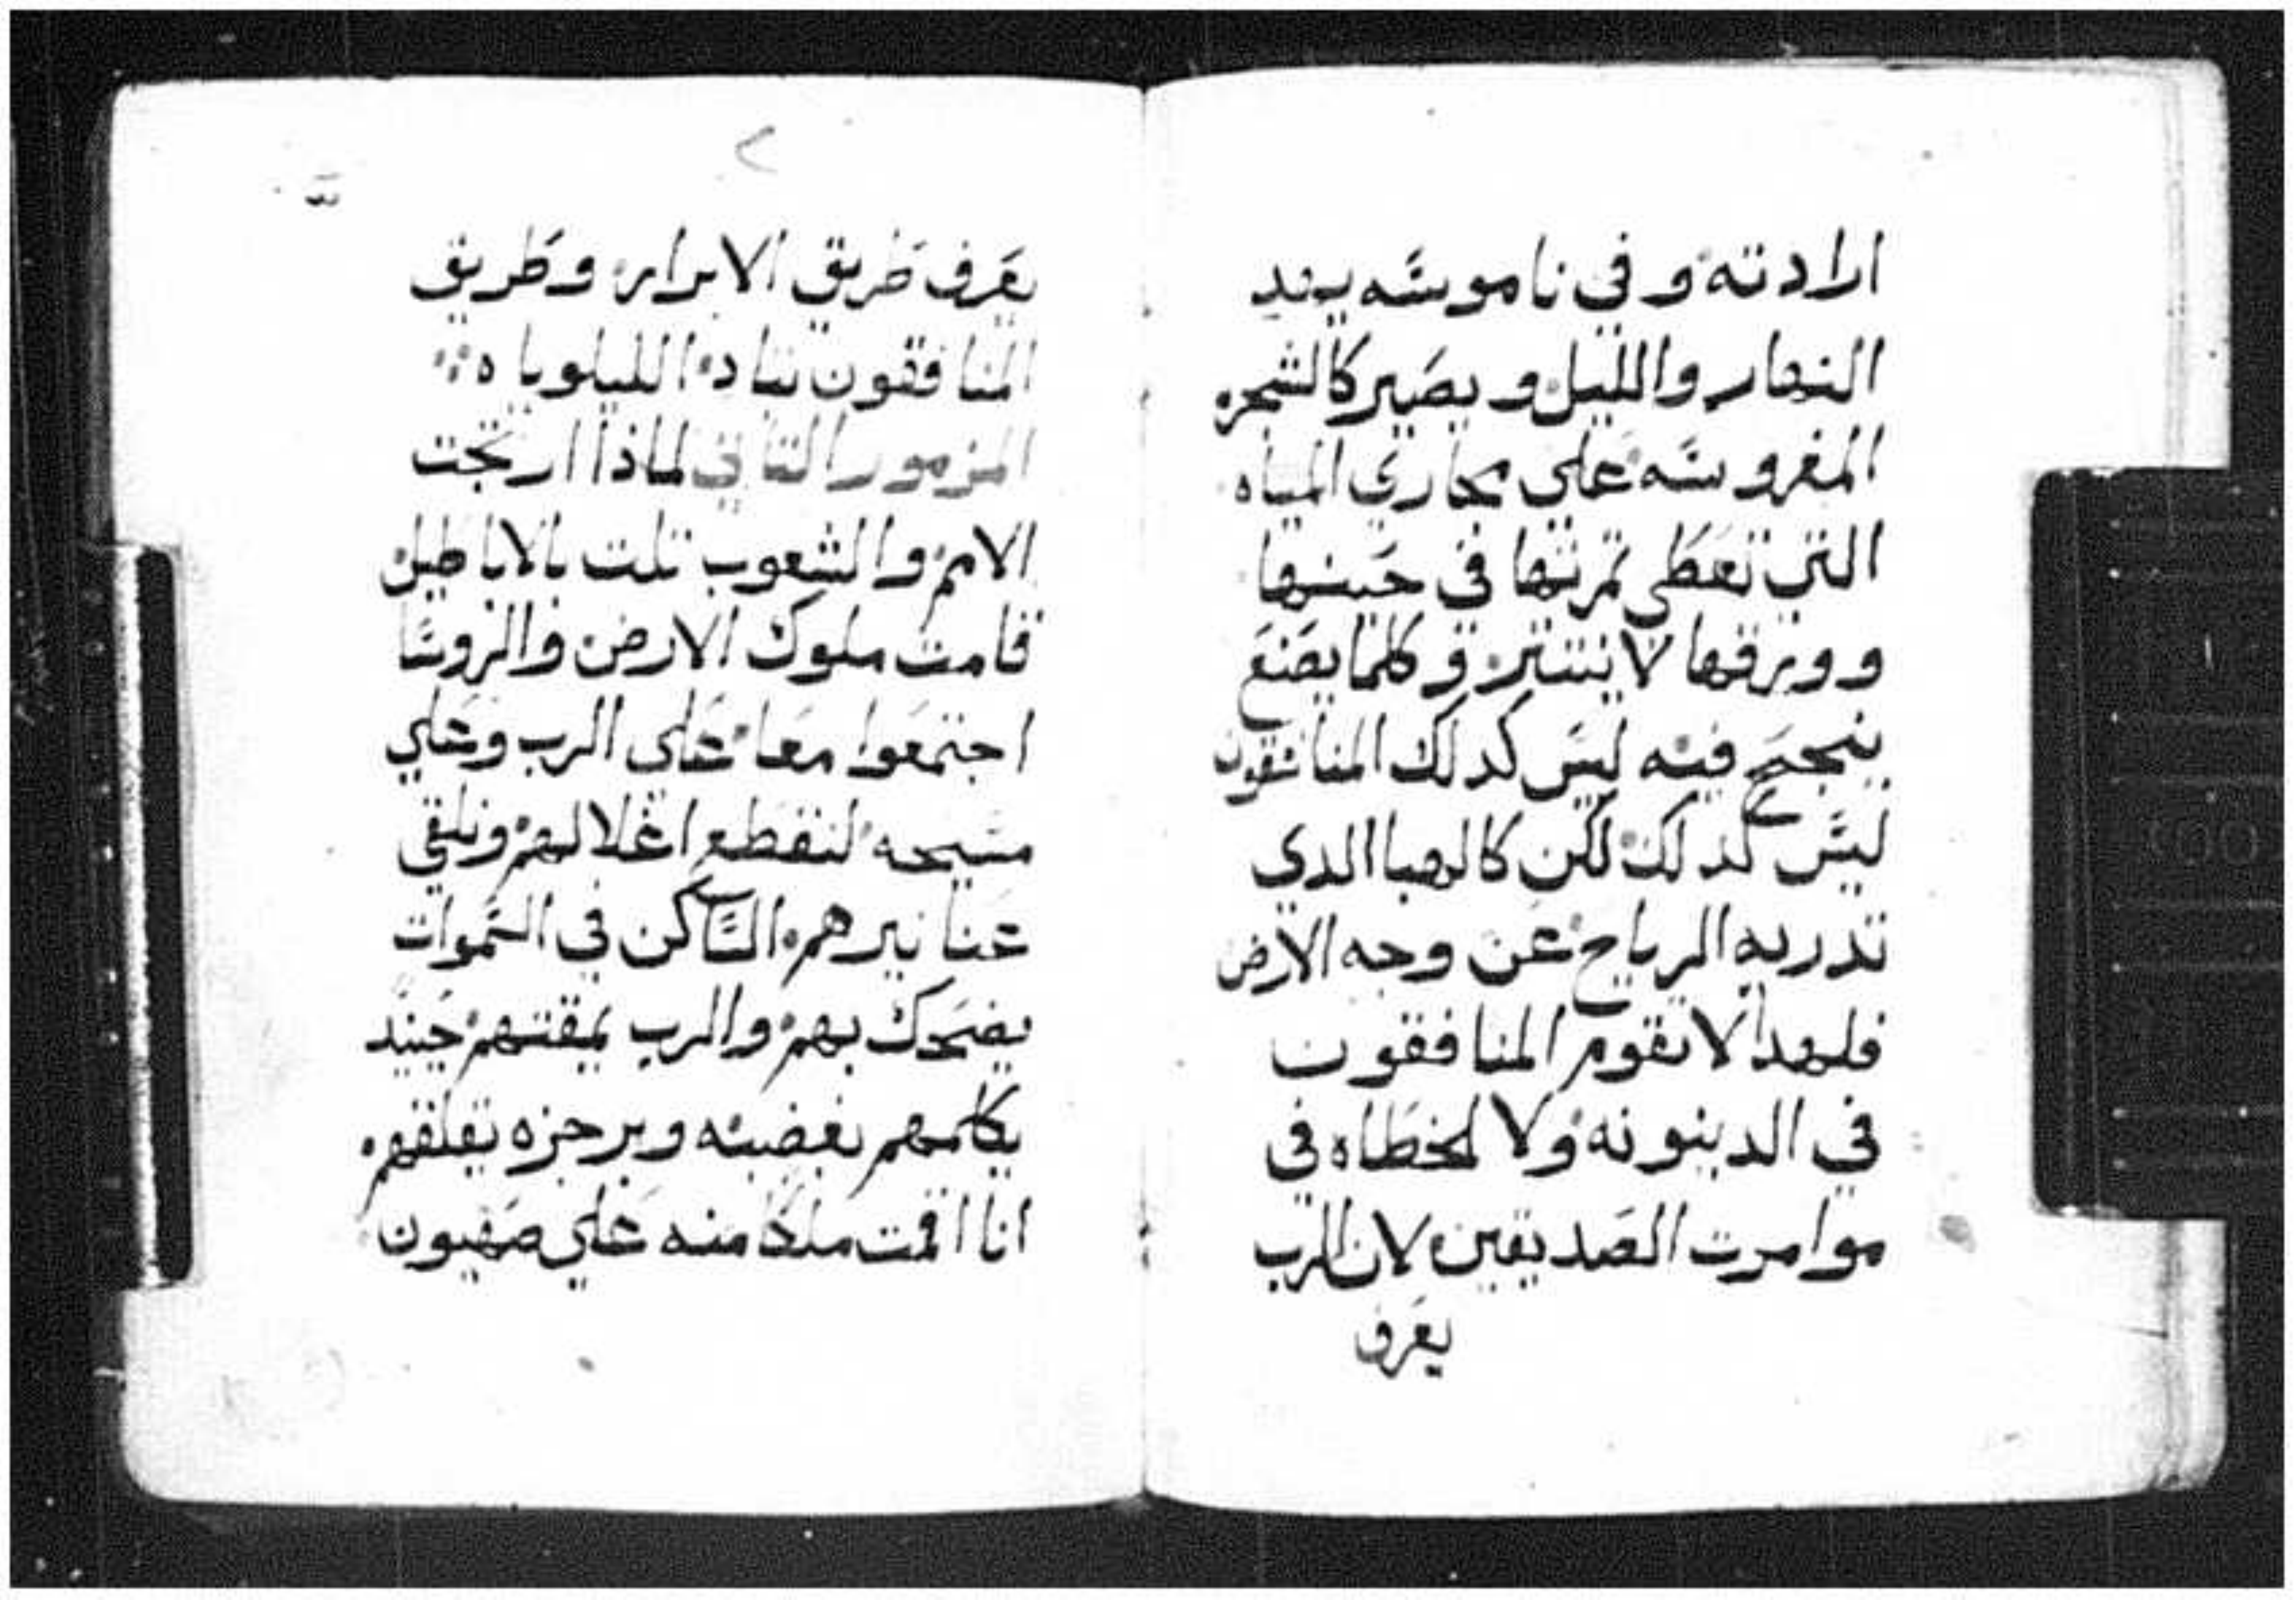 ارادته وفي ناموسه يهد
النهار والليل ويصير كالشجره
المغروسه علي مجاري المياه
التي تعطي تمرتها في حينها
وورقها لا ينتتر وكلما يصنع
ينجح فيه ليس كدلك المنافقون
ليس كدلك لكن كالهبا الدي
تدريه الرياح عن وجه الارض
فلهدا لا تقوم المنافقون
في الدينونه ولا الخطاه في
موامرت الصديقين لان الرب
يعرف
٢
يعرف طريق الابرار وطريق
المنافقون تباد الليلوياه
المزمور التاني لماذا ارتجت
الامم والشعوب تلت بالاباطيل
قامت ملوك الارض والروسا
اجتمعوا معا علي الرب وعلي
مسيحه لنقطع اغلالهم ونلقي
عنا نيرهم الساكن في السموات
يضحك بهم والرب يمقتهم حينيد
يكلمهم بغضبه وبرجزه يقلقهم
انا اقمت ملكا منه علي صهيون